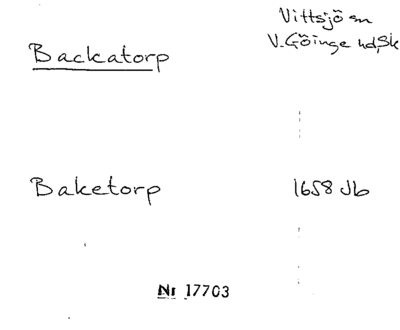 Vittsjö sn
Backatorp
V. Göinge hd, Sk
Baketorp
1658 Jb
Nr 17703